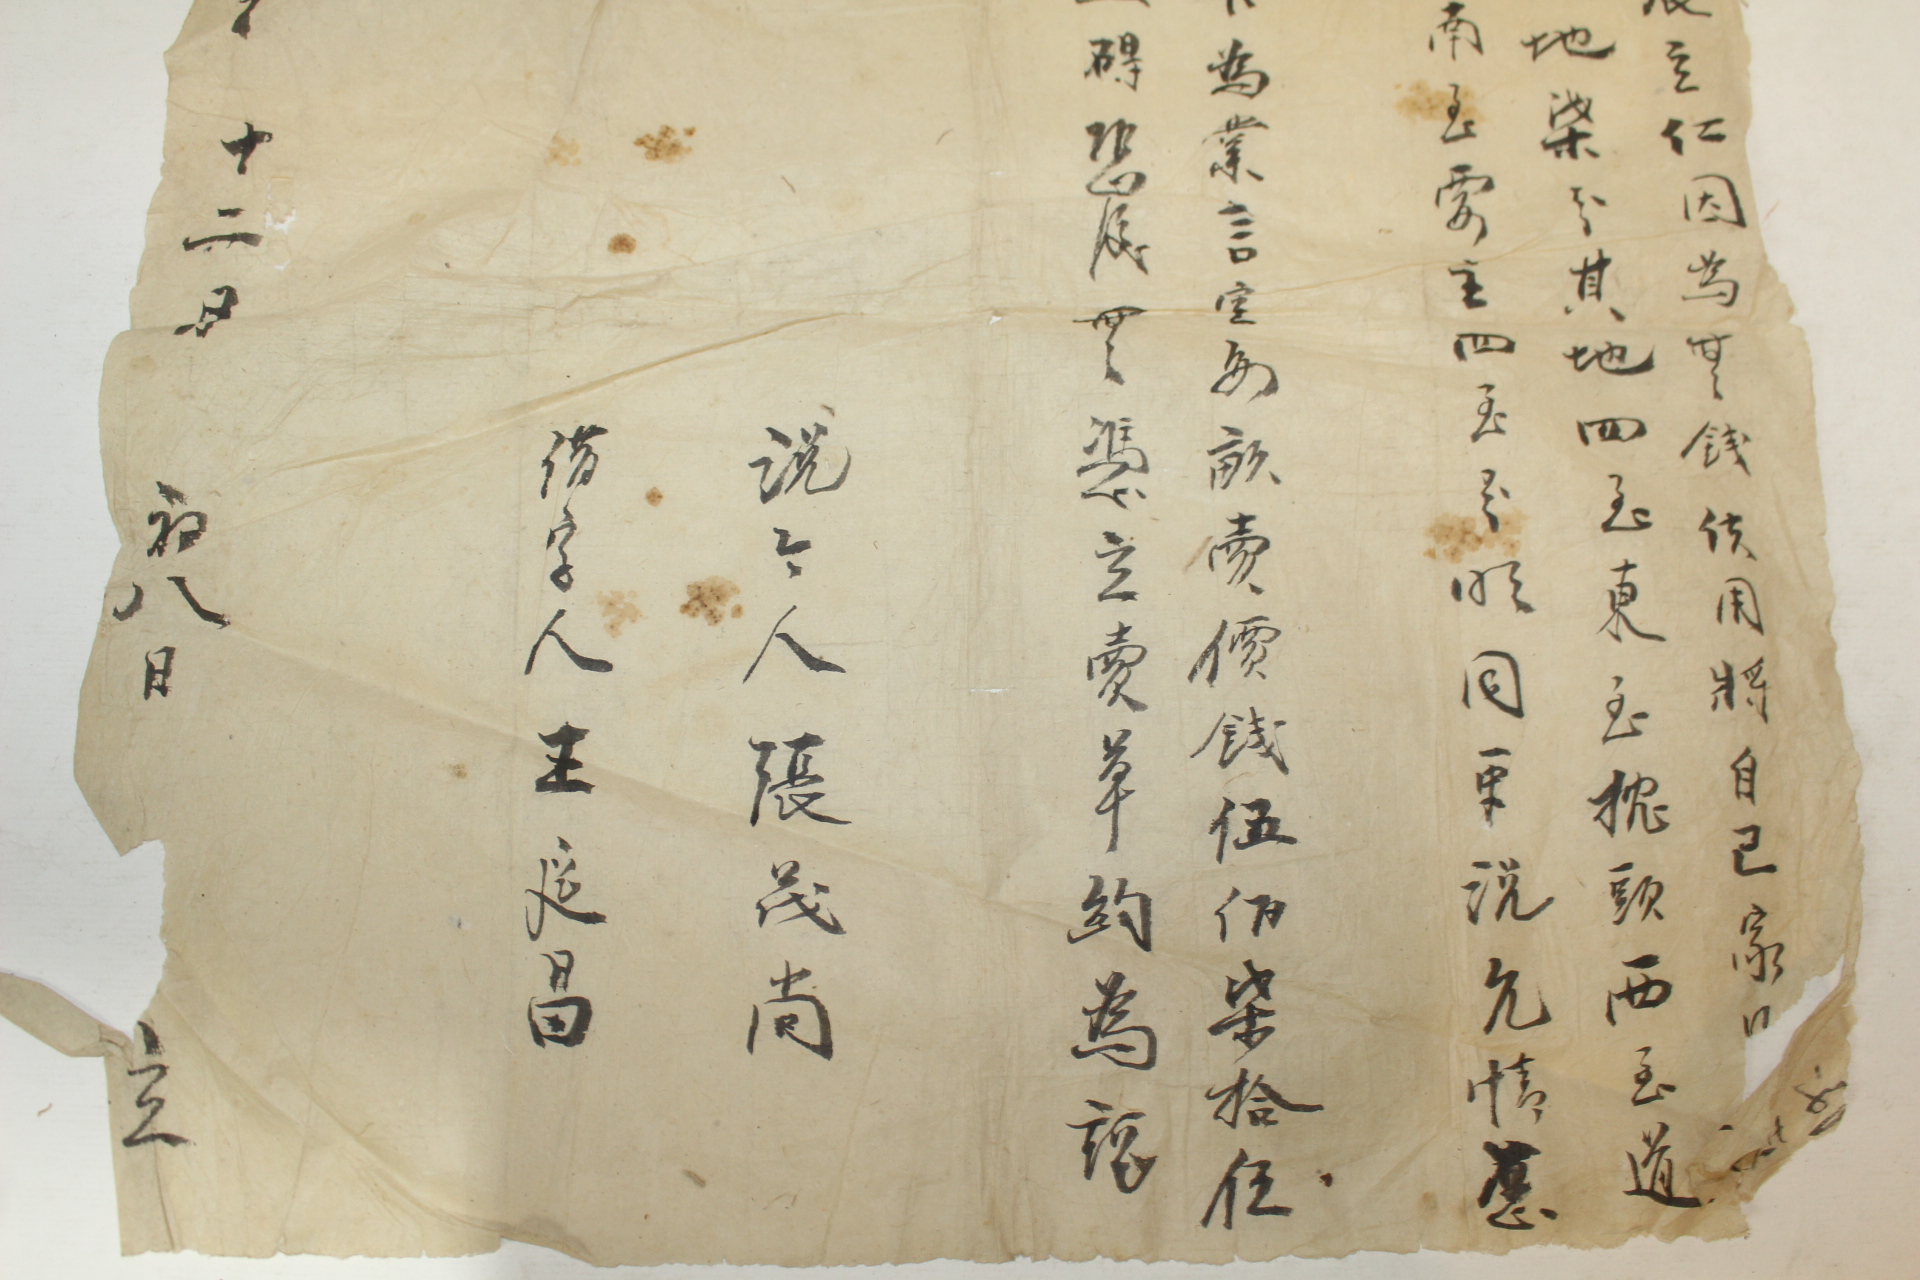 立仁因為無錢使用將自己家口
地柒分其地四至東至挽頭西至道
南至買主四至分明同中说允情愿
為業言定每畝賣價錢伍佰柒拾伍
碍恐後無憑立賣草約為証
说合人張茂尚
借字人王廷昌
十二月初八日立